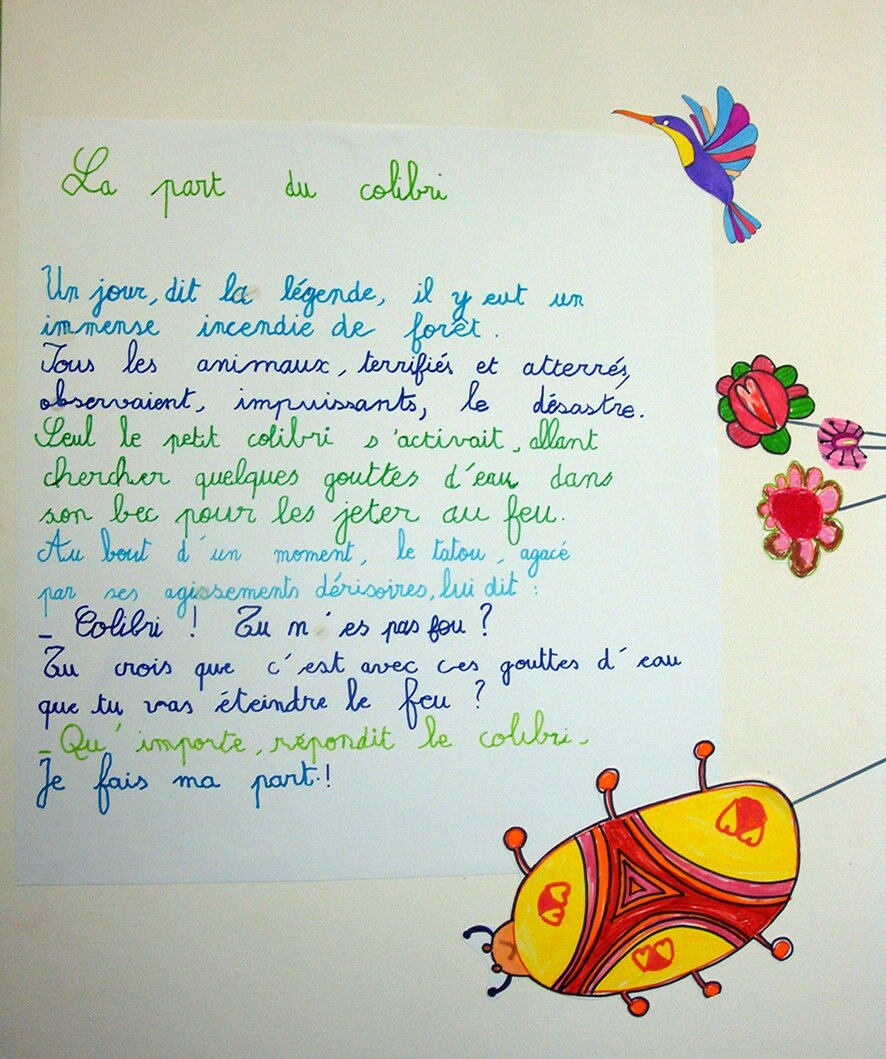 La part du colibri
Un jour, dit la légende, il y eut un
immense incendie de forêt.
Tous les animaux, terrifiés et atterrés,
observaient, impuissants, le désastre.
Seul le petit colibri s'activait, allant
chercher quelques gouttes d'eau dans
son bec pour les jeter au feu.
Au bout d'un moment, le tatou, agacé
par ses agissements dérisoires, lui dit :
_ Colibri ! Tu n'es pas fou ?
Tu crois que c'est avec ces gouttes d'eau
que tu vas éteindre le feu ?
_ Qu'importe, répondit le colibri.
Je fais ma part !